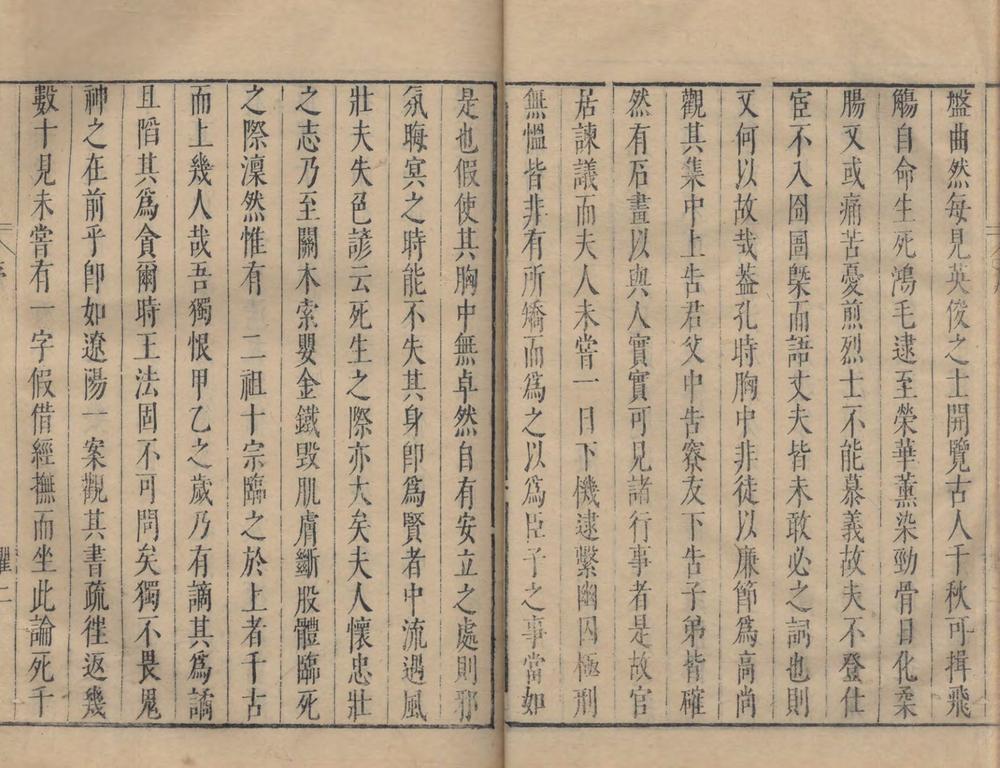 盤曲然每見英俊之士開覽古人千秋可揖飛
觴自命生死鴻毛逮至榮華薰染勁骨日化柔
腸又或痛苦憂煎烈士不能慕義故夫不登仕
宦不入囹圄槩而語丈夫皆未敢必之詞也則
又何以故哉葢孔時胸中非徒以廉節爲高尚
觀其集中上告君父中告寮友下告子弟皆確
然有石畫以與人實實可見諸行事者是故官
居諫議而夫人未嘗一日下機逮繫幽囚極刑
無慍皆非有所矯而爲之以爲臣子之事當如
是也假使其胸中無卓然自有安立之處則邪
氛晦冥之時能不失其身卽爲賢者中流遇風
壯夫失色諺云死生之際亦大矣夫人懷忠壯
之志乃至關木索嬰金鐵毀肌膚斷股體臨死
之際凜然惟有 二祖十宗臨之於上者千古
而上幾人哉吾獨恨甲乙之歲乃有謫其爲譎
且諂其爲貪爾時王法固不可問矣獨不畏鬼
神之在前乎卽如遼陽一案觀其書疏徃返幾
數十見未嘗有一字假借經撫而坐此論死千